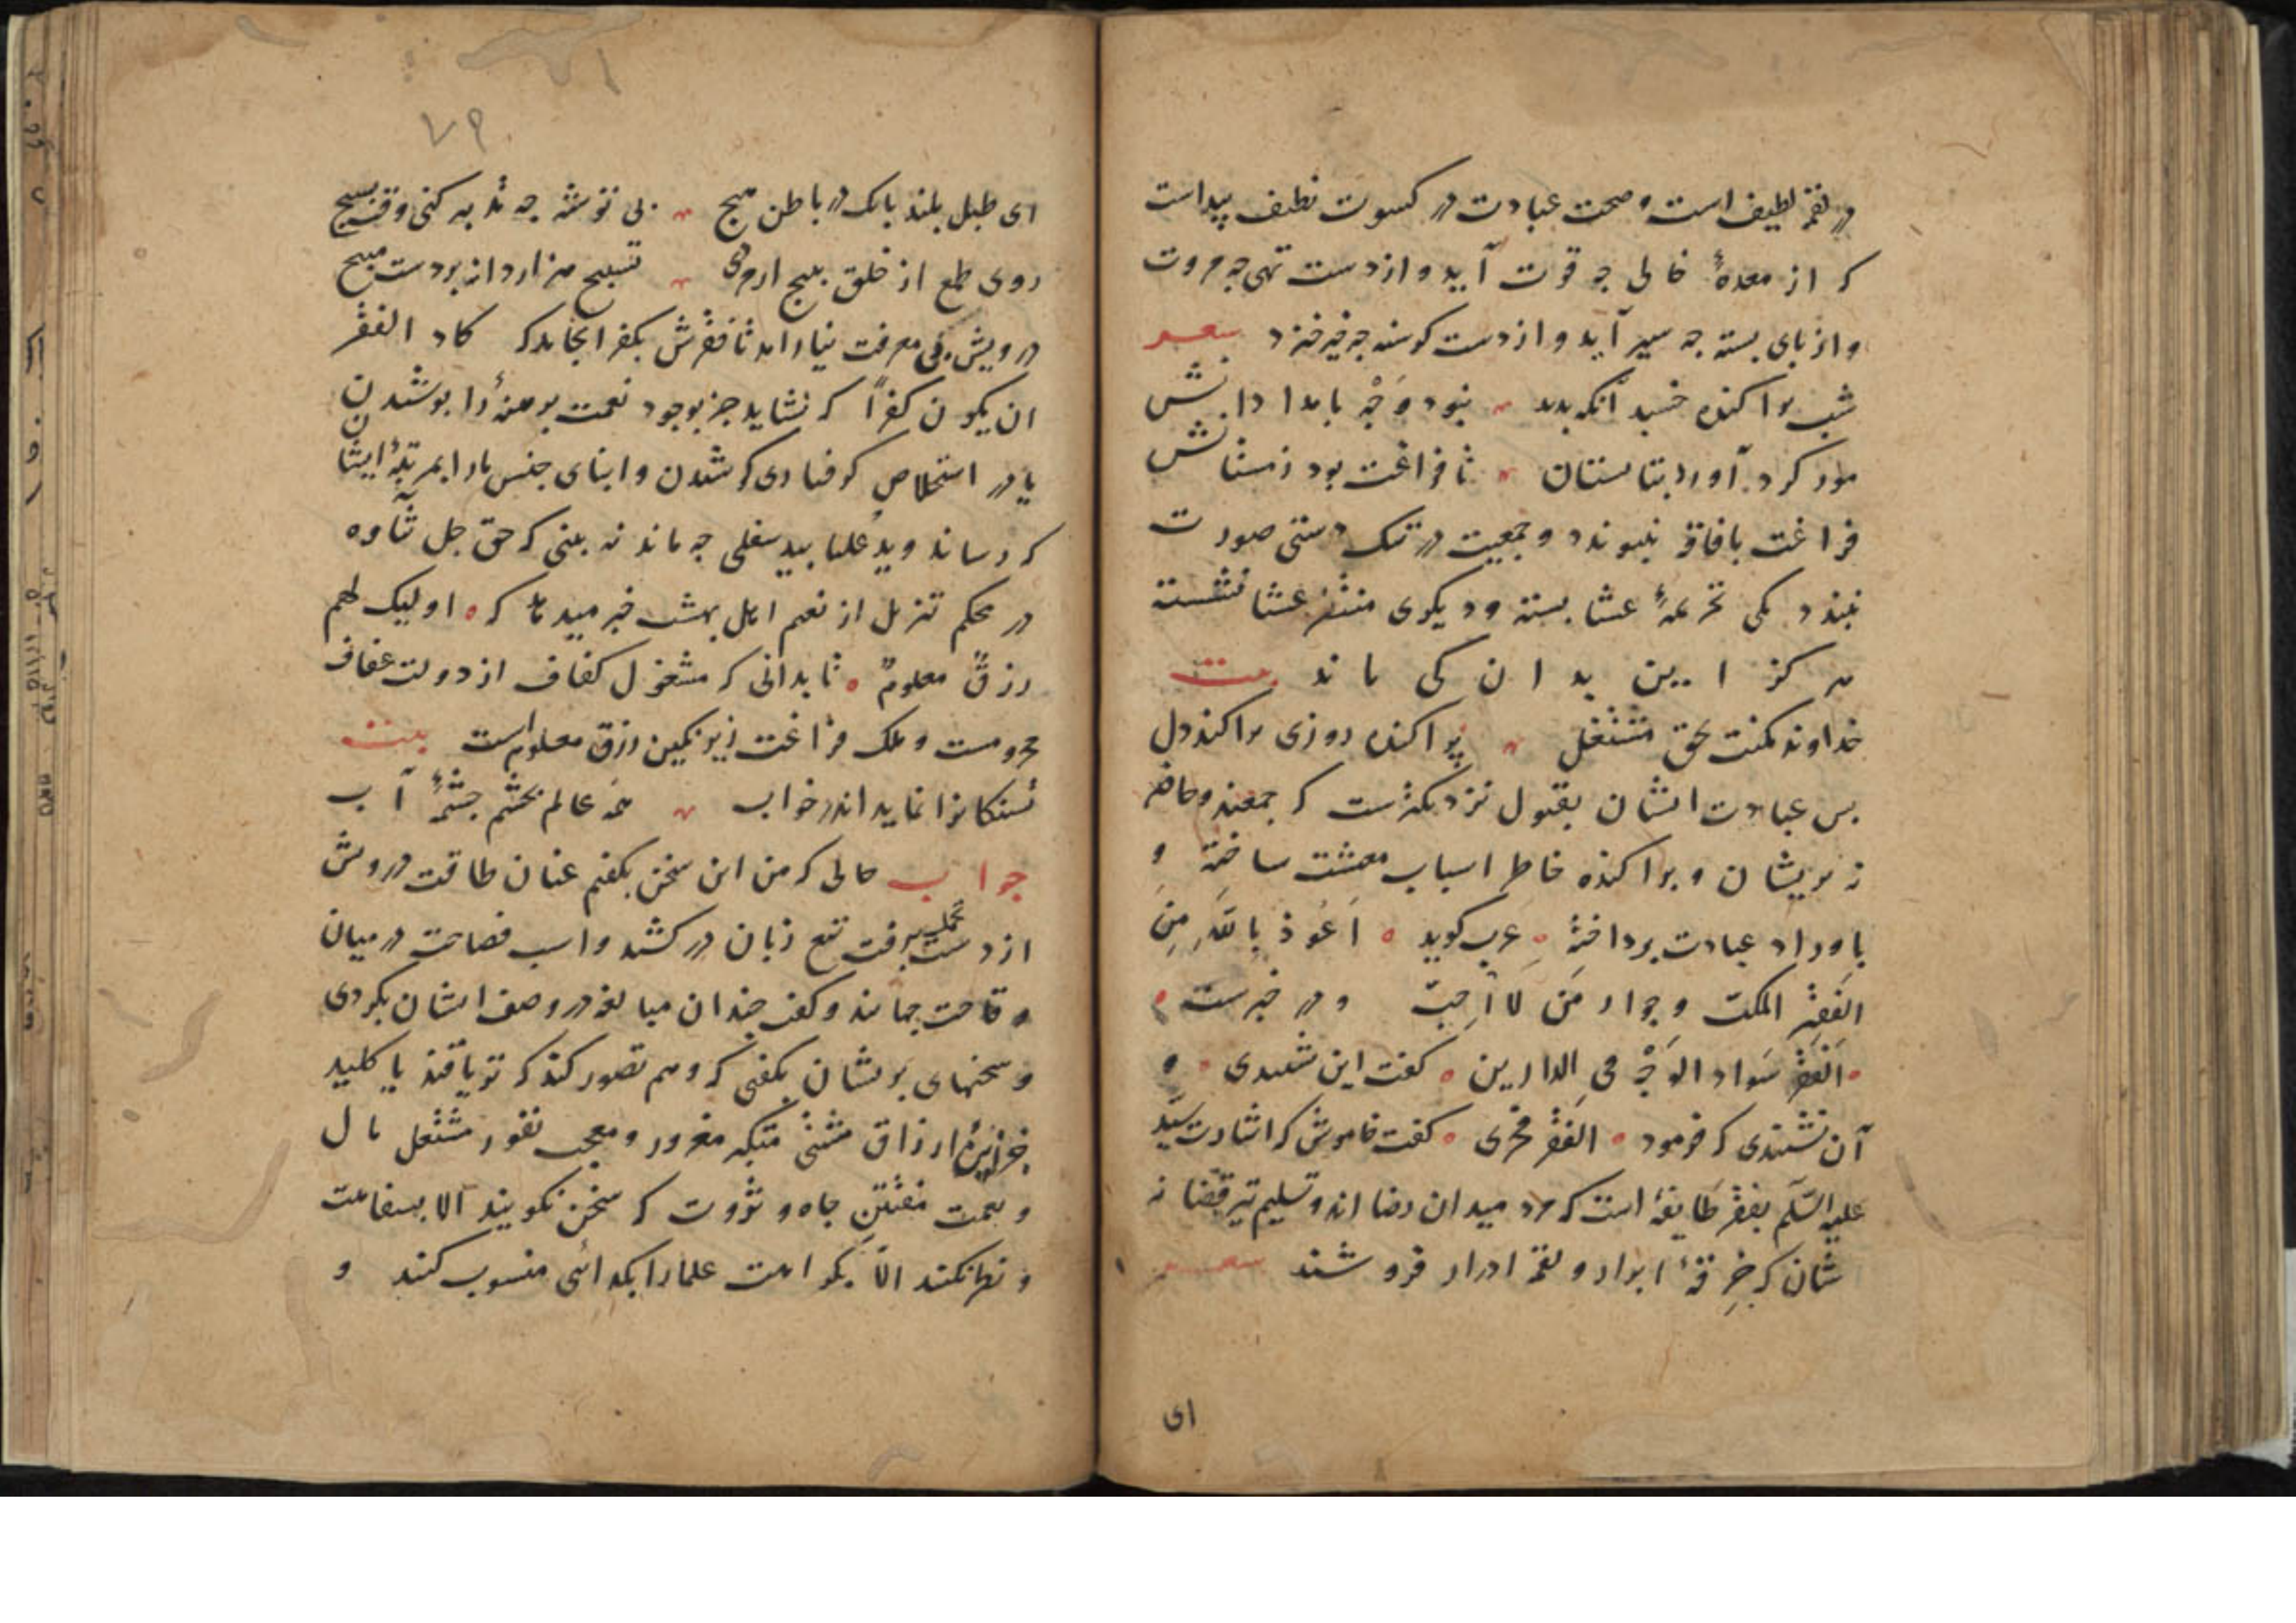 در لقمه لطیف است و صحت عبادت در کسوت نظیف پیداست
که از معدهٔ خالی چه قوت آید و از دست تهی چه مروت
و از پای بسته چه سیر آید و از دست کرسنه چه خیر خیزد شعر
شب پراکنده خسبد آنکه بدید نبود وَجْهِ بامدادانش
مور کرد آورد بتابستان تا فراغت بود زمستانش
فراغت بافاقه نپیوندد و جمعیت در تنک دستی صورت
نبندد یکی تحریمهٔ عشا بسته و دیکری منتظر عشا نشسته
هرکز این بدان کی ماند بیت
خداوند مکنت بحق مشتغل پراکنده روزی پراکنده دل
بس عبادت ایشان بقبول نزدیکترست که جمعند و حاضر
نه پریشان و پراکنده خاطر اسباب معیشت ساخته و
باوراد عبادت پرداخته عرب کوید اَعُوذُ بِاللهِ مِنَ
اَلفَقْرِ المکبّ وجوار مَن لا اُحِبّ و در خبرست
اَلفَقْرُ سَوادُ الوَجْهِ فی الدارین کفت این شنیدی و
آن نشنیدی که فرمود الفَقْرُ فخری کفت خاموش که اشارت سیّد
علیه السّلم بفقر طایفهٔ است که مرد میدان رضا اند و تسلیم تیر قضا نه
شان که خِرقهٔ ابرار و لقمهٔ ادرار فروشند شعر
ای
۷۹
ای طبل بلند بانک در باطن هیچ بی توشه چه تدبیر کنی وقت بسیج
روی طمع از خلق بپیچ ار مردی تسبیح هزار دانه بر دست مپیچ
درویش بی معرفت نیارامد تا فقرش بکفر انجامد که کاد الفقرُ
ان یکون کفراً که نشاید جز بوجود نعمت برهنهٔ را پوشیدن
یا در استخلاص کرفتاری کوشیدن و ابنای جنس مارا بمرتبهٔ ایشان
که رساند و ید عُلیا بید سفلی چه ماند نه بینی که حق جل ثناوه
در محکم تنزیل از نعیم اهل بهشت خبر میدهد که اولیک لهم
رزقٌ معلومٌ تا بدانی که مشغول کفاف از دولت عفاف
محرومست و ملک فراغت زیر نکین رزق معلوم است بیت
تشنکانرا نماید اندر خواب همه عالم بچشم چشمهٔ آب
جواب حالی که من این سخن بکفتم عنان طاقت درویش
از دست تحمل برفت تیغ زبان در کشید و اسب فصاحت در میدان
وقاحت جهانید و کفت چندان مبالغه در وصف ایشان بکردی
و سخنهای پریشان بکفتی که وهم تصور کند که تریاقند یا کلید
خزینهٔ ارزاق مشتی متکبر مغرور و معجب نفور مشتغل مال
و نعمت مفتتنِ جاه و ثروت که سخن نکویند الا بسفاهت
و نظر نکنند الاّ بکراهت علمارا بکدائی منسوب کنند و